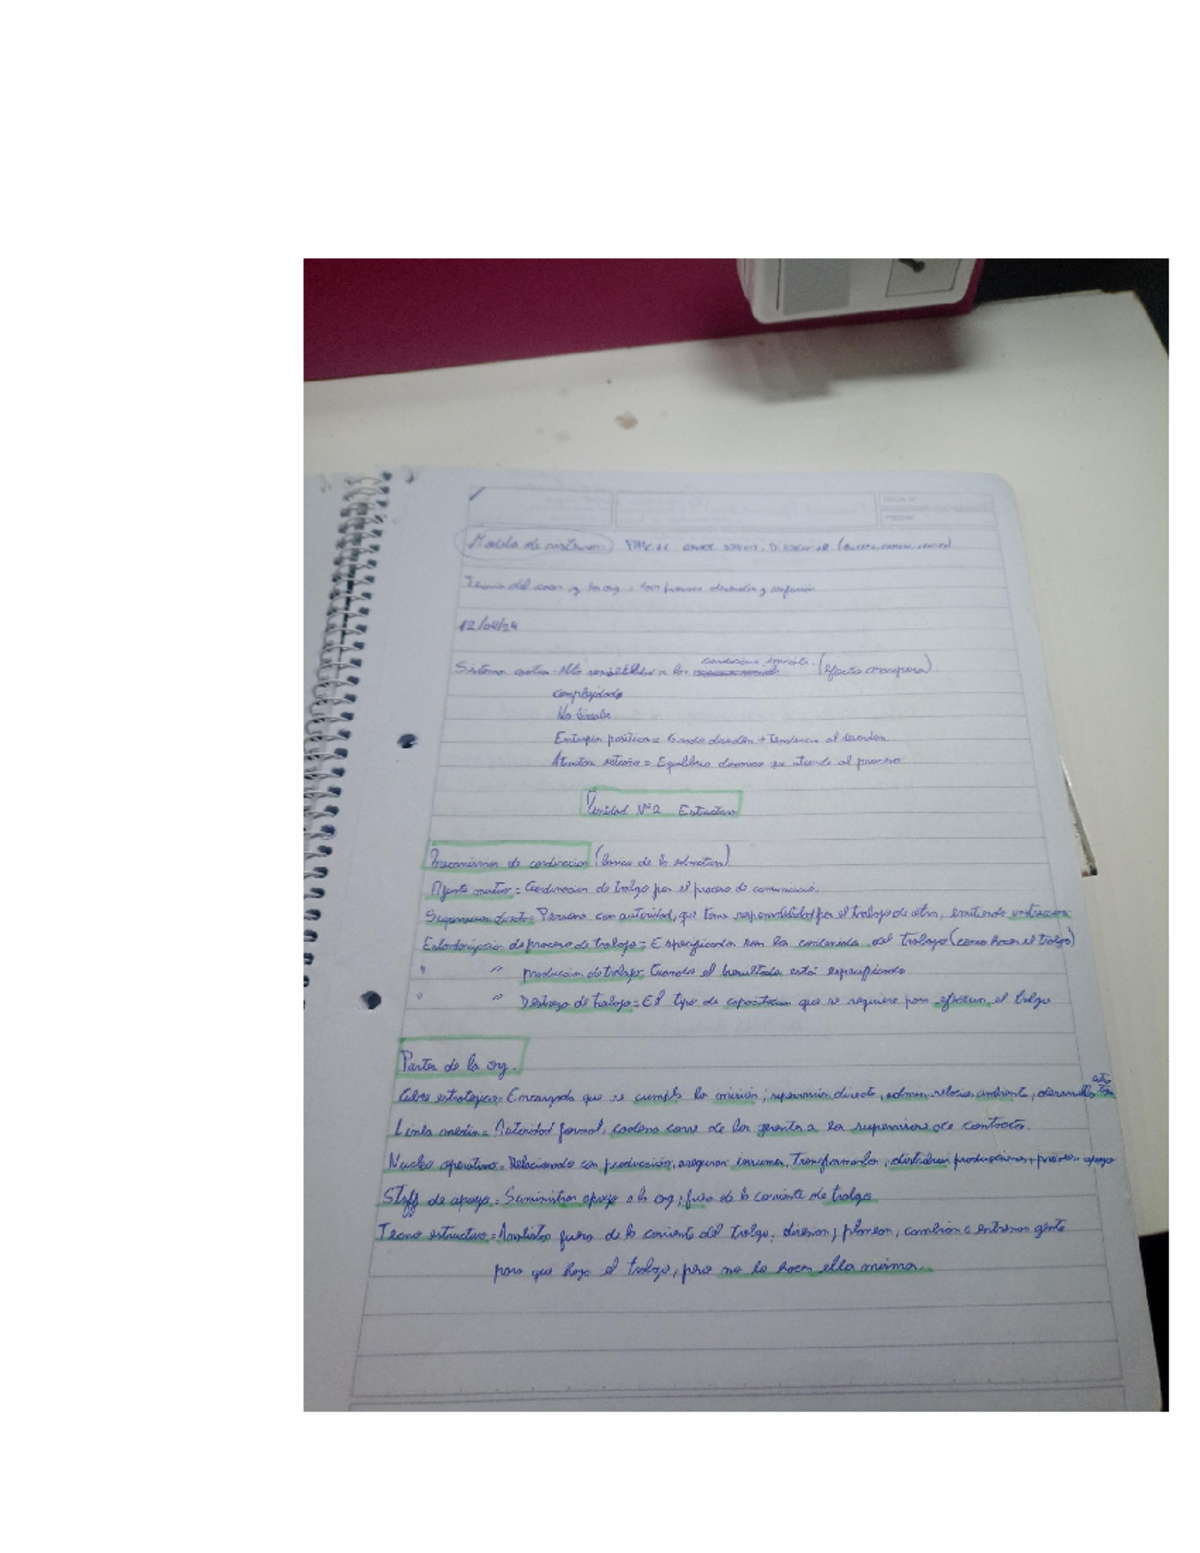 Modelo de sistemas:
Teoría del caos y la org = Son procesos desorden y confusión
12/04/24
Sistema Alta a las condiciones iniciales (Efecto mariposa)
complejidad
No lineales
Entropía positiva = Grado desorden + Tendencia al desorden
= Equilibrio dinámico al proceso
Unidad Nº2 Estructura
Mecanismos de coordinacion (Banca de la estructura)
Ajuste mutuo = Coordinacion de trabajo por el proceso de comunicació.
Supervision directa = Persona con autoridad, que toma responsabilidad por el trabajo de otra, emitiendo instrucciones
Estandarización de proceso de trabajo = Especificados son los contenidos del trabajo (como hacer el trabajo)
" " produccion de trabajo: Cuando el resultado está especificado
" " Destreza de trabajo = El tipo de capacitacion que se requiere para efectuar el trabajo
Partes de la org.
estratégica = Encargada que se cumpla la misión; supervision directa, admin. relacion ambiente, desarrolla
Linea media = Autoridad formal, cadena corre de los gerentes a los supervisores de contacto.
Nucleo operativo = Relacionado con producción, asegurar insumos, Transformarlos, distribuir producciones,
Staff de apoyo = Suministran apoyo a la org; fuera de la corriente de trabajo
Tecno estructura = Analistas fuera de la corriente del trabajo. diseñan, planean, cambian o entrenan gente
para que haga el trabajo, pero no lo hacen ella misma.